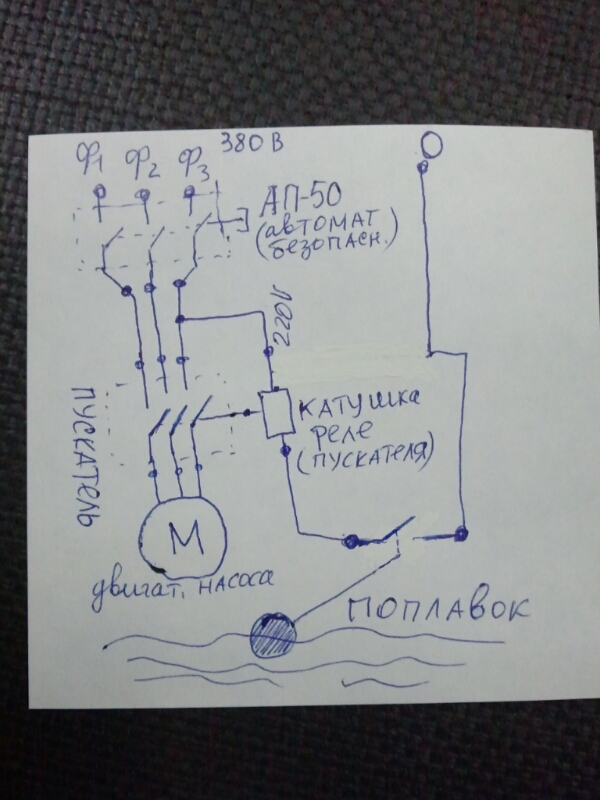 Ф1 Ф2 Ф3 380 В
О
АП-50
(автомат
безопасн.)
220V
ПУСКАТЕЛЬ
КАТУШКА
РЕЛЕ
(ПУСКАТЕЛЯ)
М
двигат. насоса
ПОПЛАВОК